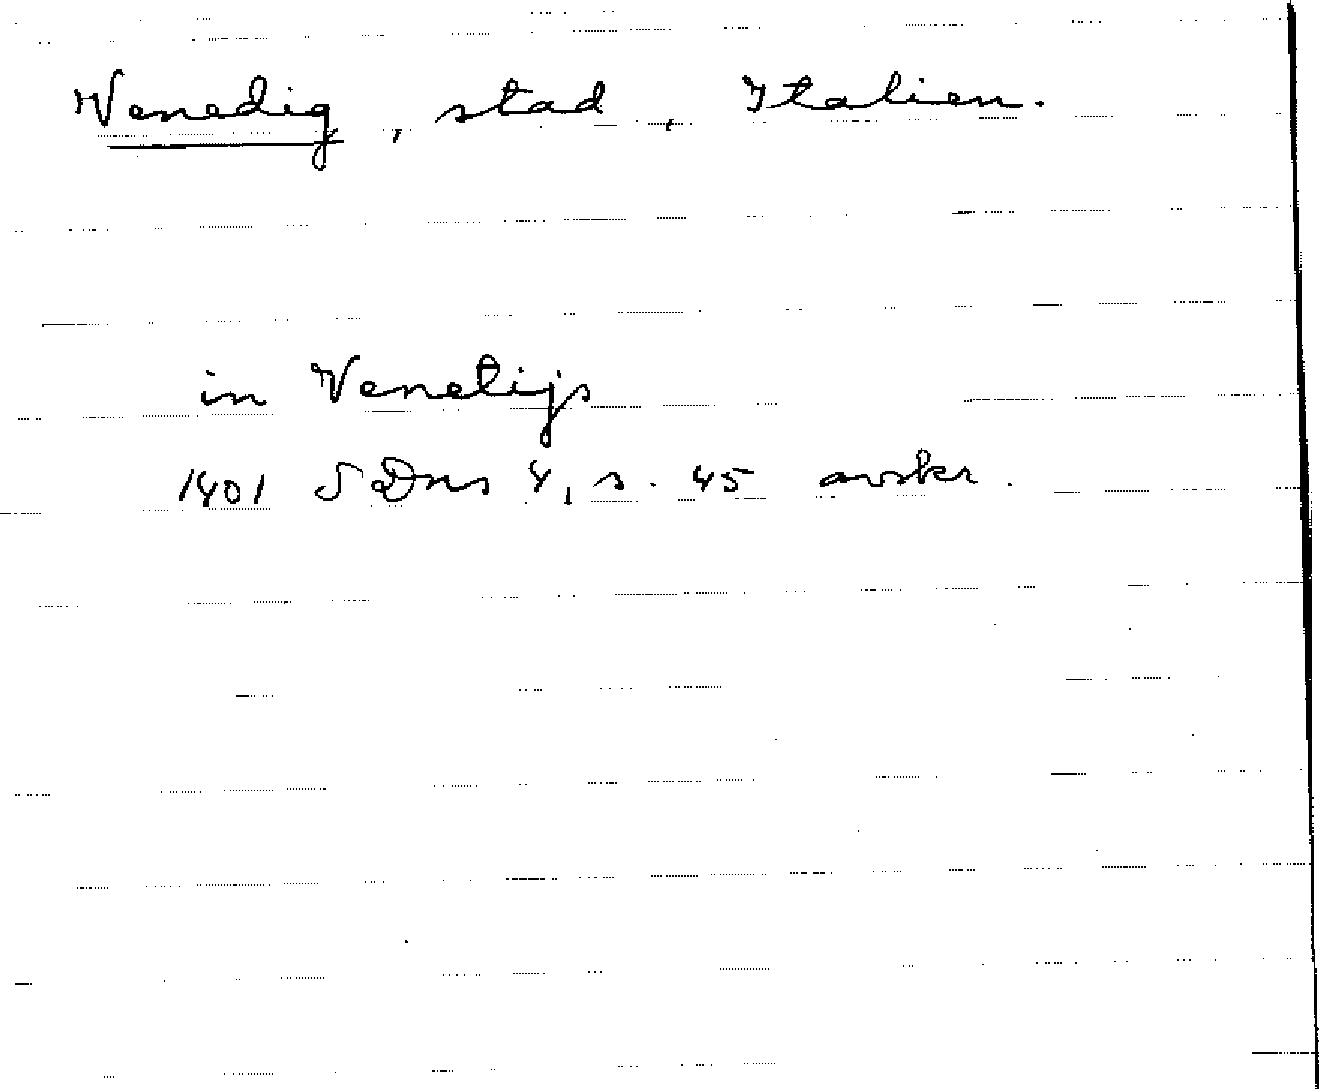 Venedig, stad, Italien.
in Venetijs
1401 SDns 4, s. 45 avskr.